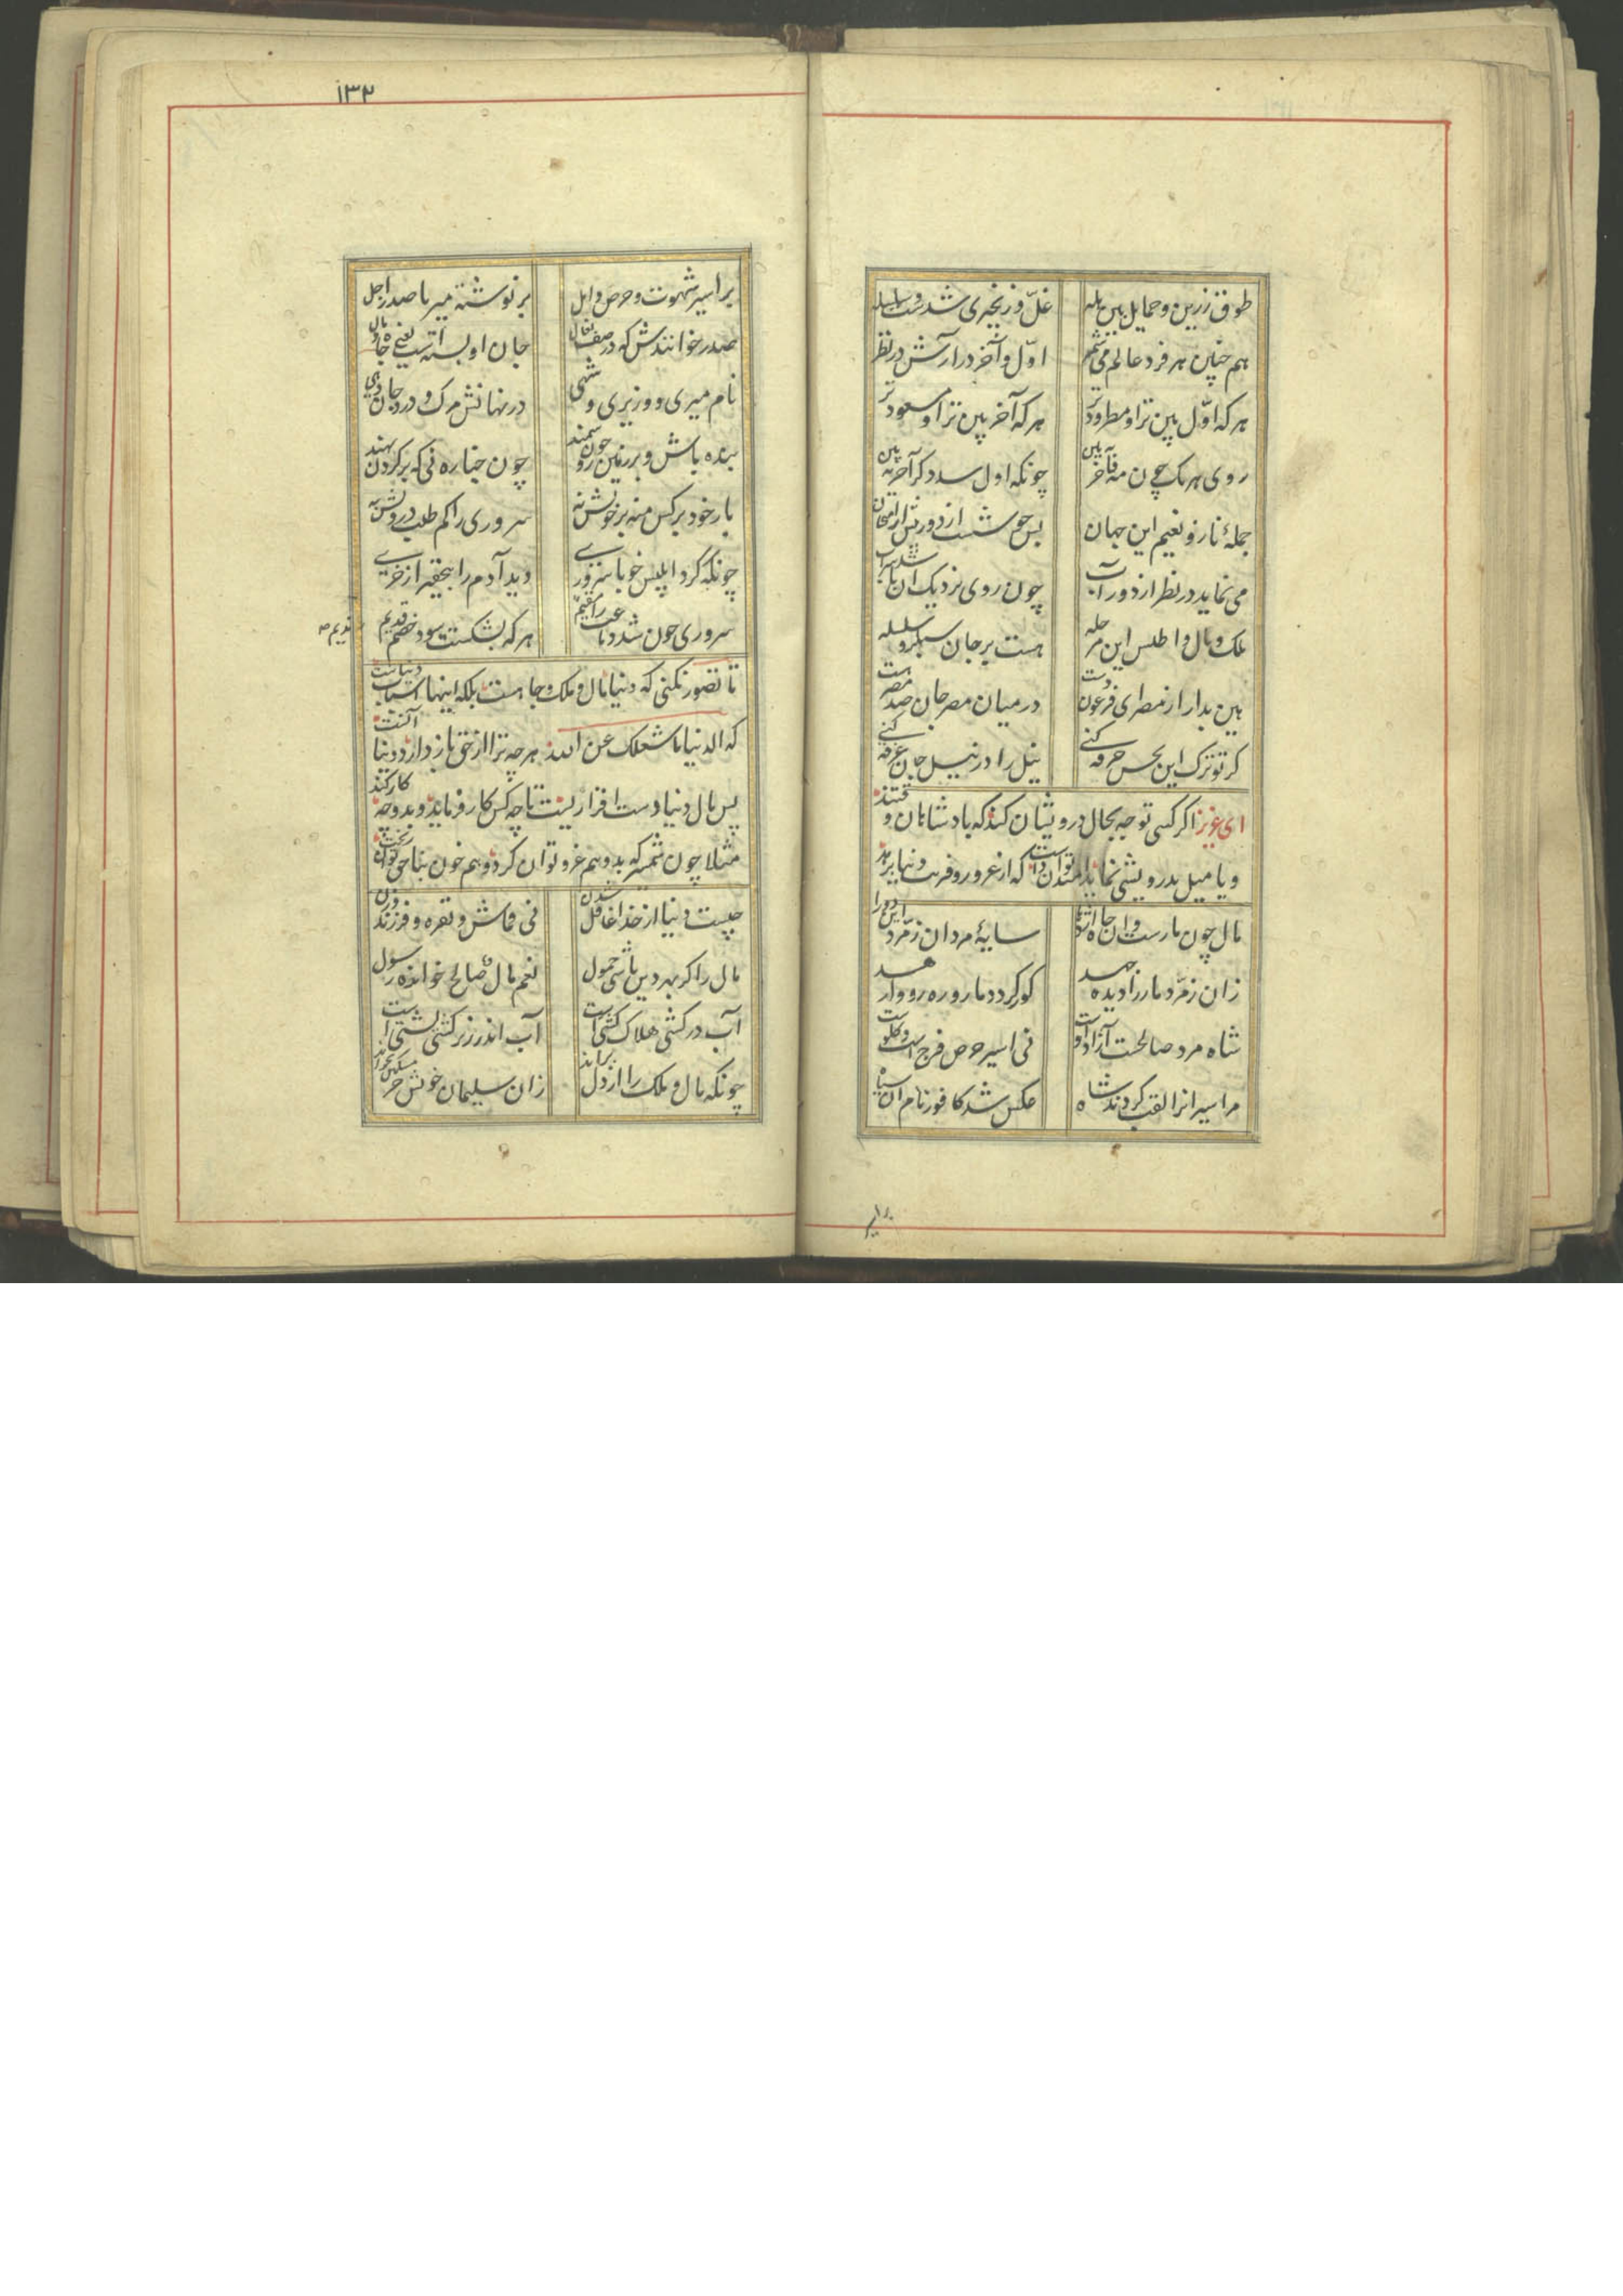 طوق زرین و حمایل بین هله
غلّ و زنجیری شدست و سلسله
هم چنین هر فرد عالم می شمر
اوّل و آخر درارش در نظر
هر که اوّل بین ترا و مطرود تر
هر که آخر بین ترا و مسعود تر
روی هر یک چون مه فاخر به بین
چونکه اول دیده شد آخر به بین
جملهٔ ناز و نعیم این جهان
بس خوشست از دور پیش از امتحان
می نماید در نظر از دور آب
چون روی نزدیک آن باشد سراب
ملک و مال و اطلس این مرحله
هست بر جان سبکرو سلسله
هین بدار از مصر ای فرعون دست
در میان مصر جان صد مصر هست
کر تو ترک این نجس خرقه کنی
نیل را در نیل جان غرقه کنی
ای عزیز اکر کسی توجه بحال درویشان کند که پادشاهان وقتند
و یا میل بدرویشی نماید تواند که از غرور و فریب دنیا برهد
مال چون مارست و آن جاه اژدها
سایهٔ مردان زمرّد این دو را
زان زمرّد مار را دیده جهد
کور کردد مار و ره رو وارهد
شاه مرد صالحست آزاد اوست
نی اسیر حرص فرجست و کلوست
مر اسیرانرا لقب کردند شاه
عکس شد کافور نام آن سیاه
بر اسیر
۱۳۲
بر اسیر شهوت و حرص و امل
بر نوشته میر یا صدر اجل
صدر خوانندش که در صف نعال
جان او پسته است یعنی جاه و مال
نام میری و وزیری و شهی
در نهانش مرک و درد و جان دهی
بنده باش و بر زمین رو چون سمند
چون جنازه نی که بر کردن نهند
بار خود بر کس منه بر خویش نه
سروری را کم طلب درویش به
چونکه کرد ابلیس خو با سروری
دید آدم را بتحقیر از خری
سروری چون شد دماغت را ندیم
هر که بشکستت شود خصم قدیم
ندیم
تا تصور نکنی که دنیا مال و ملک و جاهست بلکه اینها اسباب دنیاست
که الدنیا ما شغلک عن الله هر چه ترا از حق باز دارد دنیا آنست
پس مال دنیا دست افزاریست تا چه کس کار فرماید و بدو چه کار کند
مثلا چون شمشیر که بدو هم غزو توان کرد و هم خون بناحق توان ریخت
چیست دنیا از خدا غافل شدن
نی قماش و نقره و فرزند و زن
مال را کر بهر دین باشی حمول
نعم مال صالح خوانده رسول
آب در کشتی هلاک کشتی است
آب اندر زیر کشتی پشتی است
چونکه مال و ملک را از دل براند
زان سلیمان خویش جز مسکین نخواند